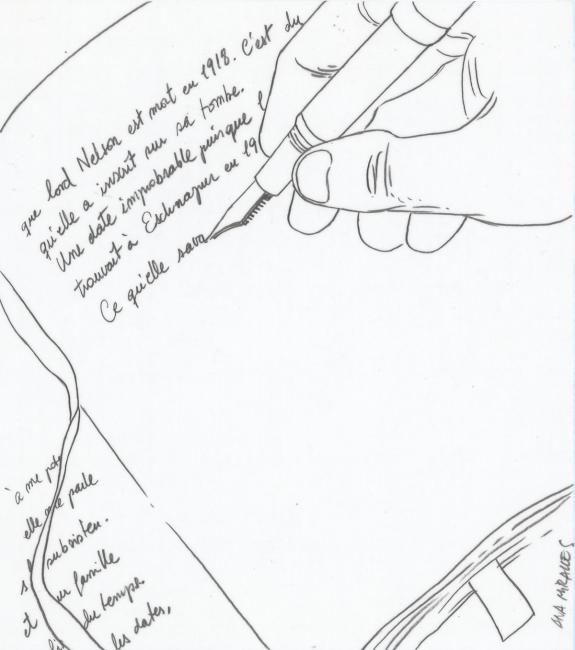 que lord Nelson est mort en 1918. C'est du
qu'elle a inscrit sur sa tombe.
Une date improbable puisque l
trouvait à Eschnapur en 19
Ce qu'elle sava
à me
elle me parle
subsister.
et famille
du temps.
les dates,
ANA MIRALLES